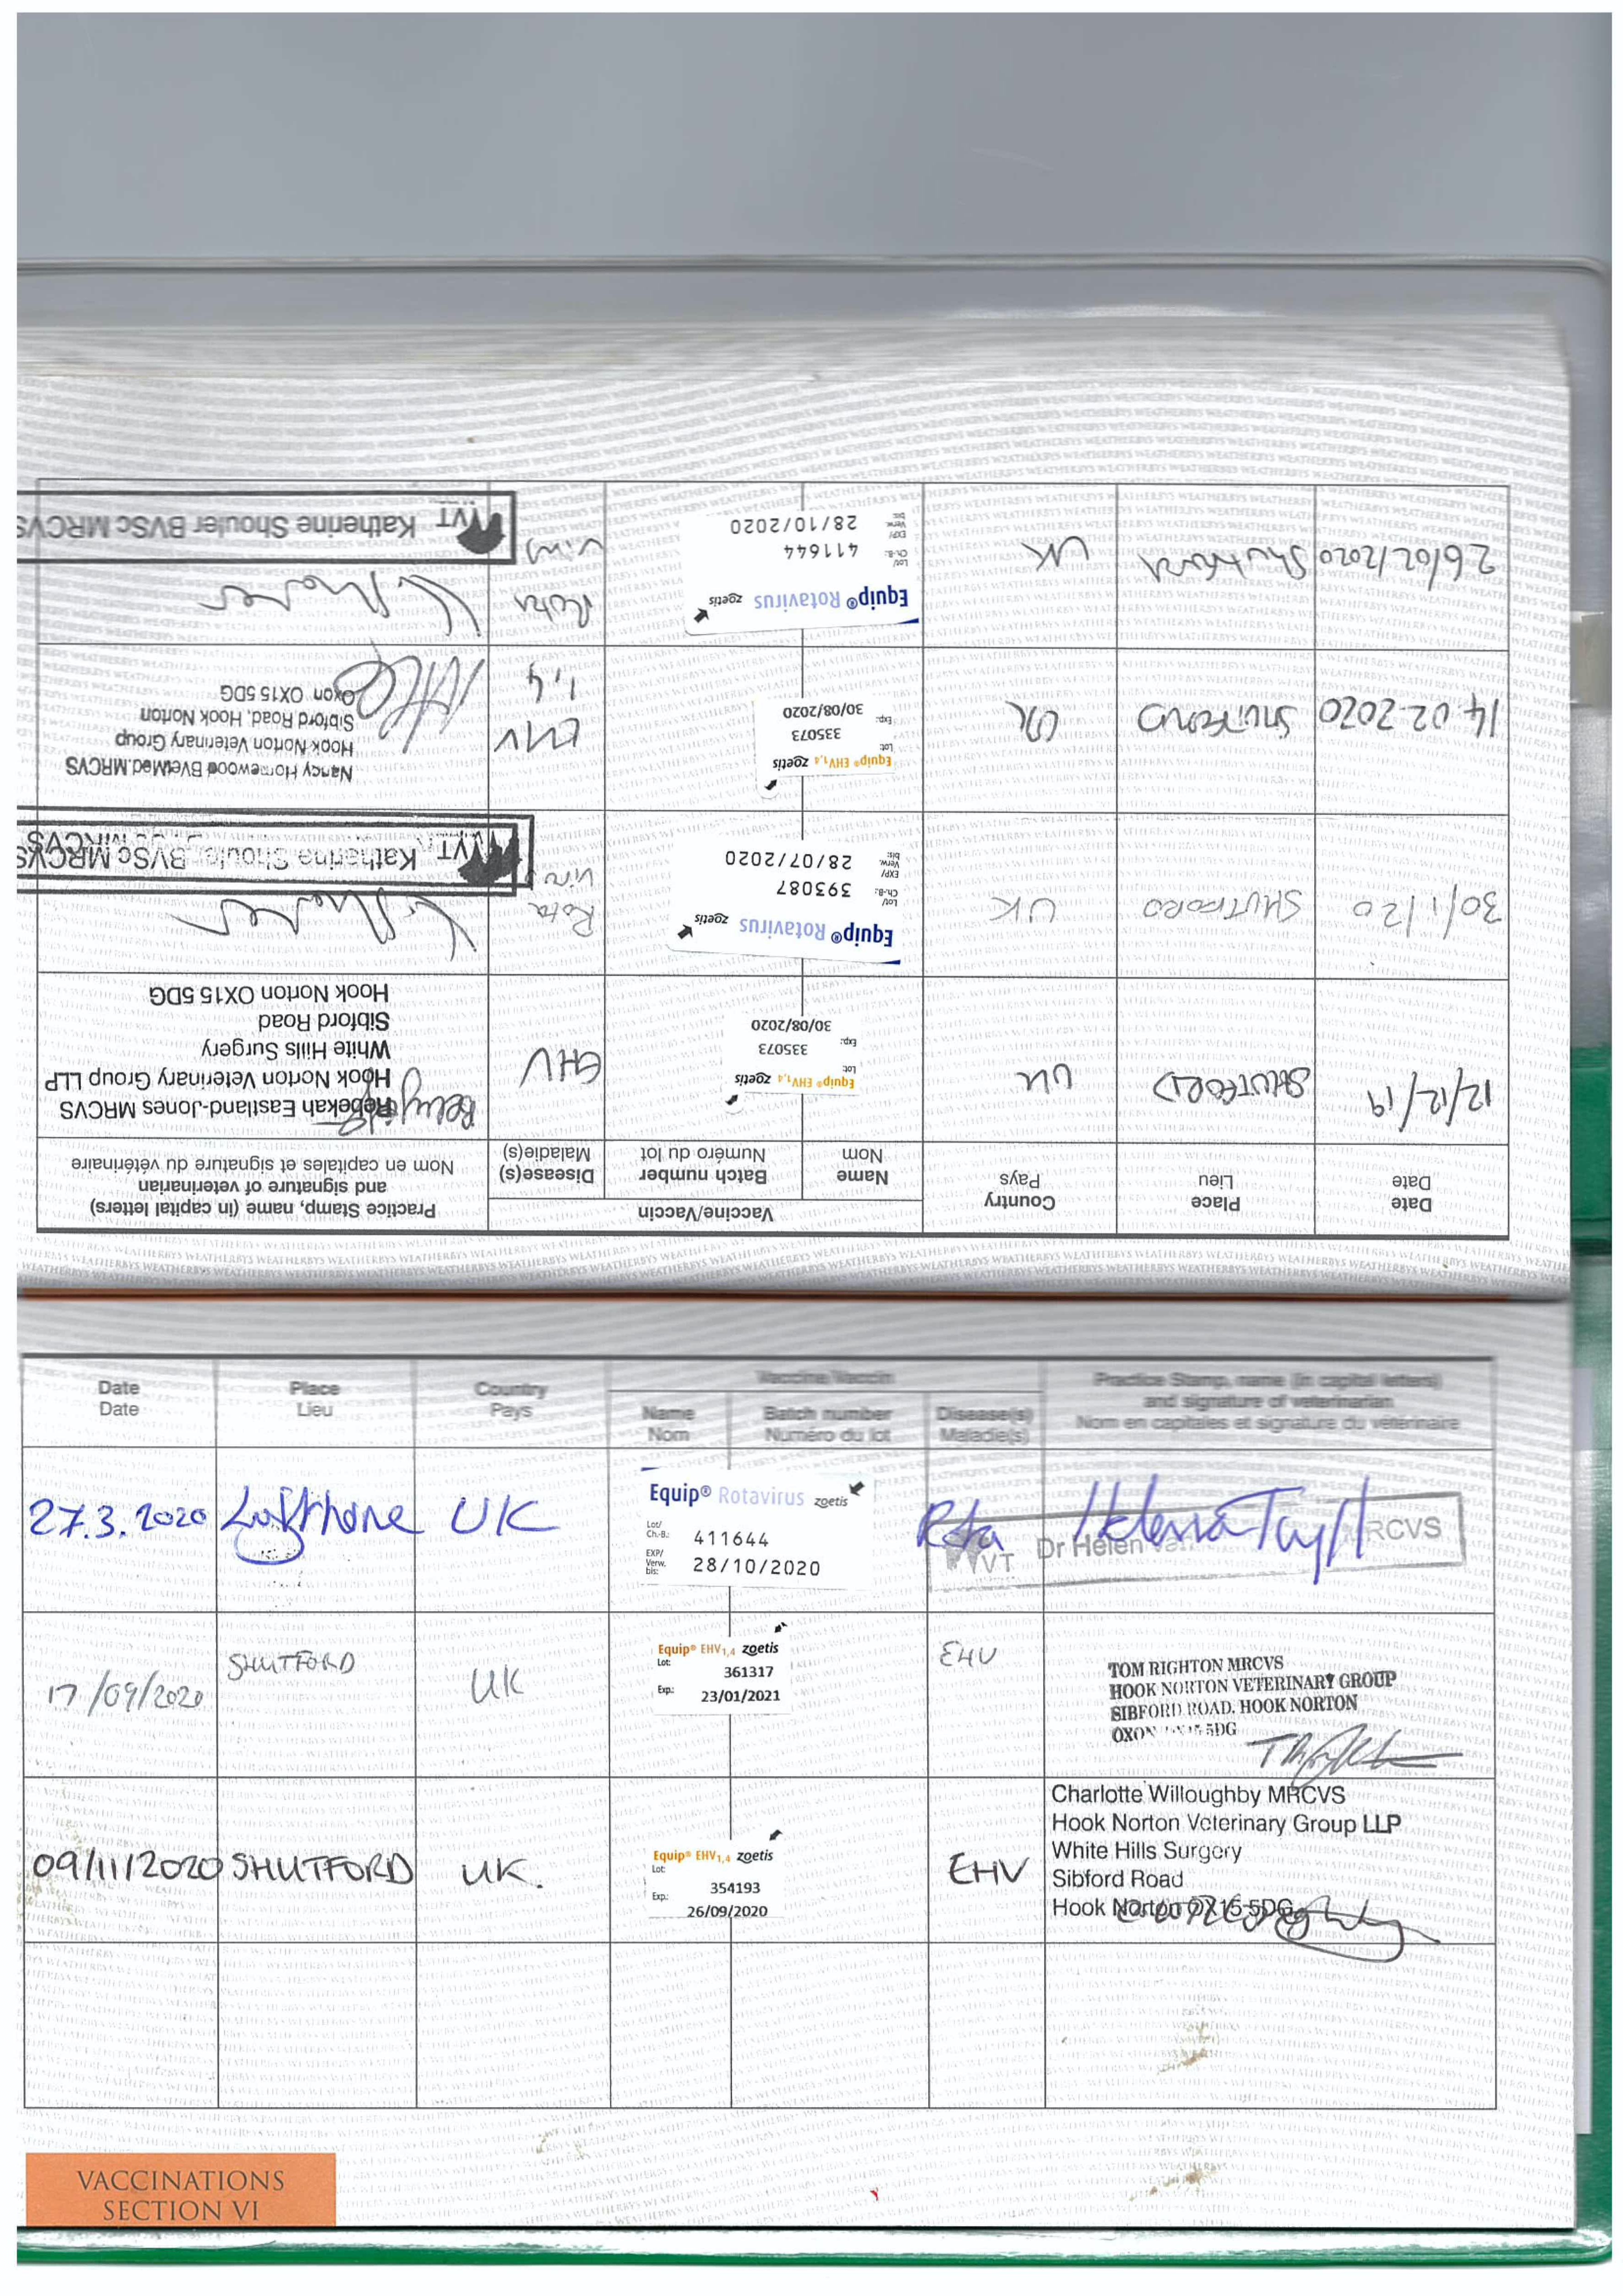 Date
Date
Place
Lieu
Country
Pays
Vaccine/Vaccin
Name
Nom
Batch number
Numéro du lot
Disease(s)
Maladie(s)
Practice Stamp, name (in capital letters)
and signature of veterinarian
Nom en capitales et signature du vétérinaire
12/12/19 SHUTFORD UK
Equip® EHV1,4 zoetis
Lot: 335073
Exp: 30/08/2020
EHV
Rebekah Eastland-Jones MRCVS
Hook Norton Veterinary Group LLP
White Hills Surgery
Sibford Road
Hook Norton OX15 5DG
30/1/20 SHUTFORD UK
Equip® Rotavirus zoetis
Lot/ Ch.-B.: 393087
EXP/ Verw. bis: 28/07/2020
Rota
virus
VT Katherine Shouler BVSc MRCVS
14.02.2020 SHUTFORD UK
Equip® EHV1,4 zoetis
Lot: 335073
Exp: 30/08/2020
EHV
1,4
Nancy Homewood BVetMed.MRCVS
Hook Norton Veterinary Group
Sibford Road, Hook Norton
Oxon OX15 5DG
26/02/2020 Shutford UK
Equip® Rotavirus zoetis
Lot/ Ch.-B.: 411644
EXP/ Verw. bis: 28/10/2020
Rota
virus
VT Katherine Shouler BVSc MRCVS
Date
Date
Place
Lieu
Country
Pays
Vaccine/Vaccin
Name
Nom
Batch number
Numéro du lot
Disease(s)
Maladie(s)
Practice Stamp, name (in capital letters)
and signature of veterinarian
Nom en capitales et signature du vétérinaire
27.3.2020 UK
Equip® Rotavirus zoetis
Lot/ Ch.-B.: 411644
EXP/ Verw. bis: 28/10/2020
Rota
VT Dr Helen MRCVS
17/09/2020 SHUTFORD UK
Equip® EHV1,4 zoetis
Lot: 361317
Exp.: 23/01/2021
EHV
TOM RIGHTON MRCVS
HOOK NORTON VETERINARY GROUP
SIBFORD ROAD. HOOK NORTON
OXON 5DG
09/11/2020 SHUTFORD UK.
Equip® EHV1,4 zoetis
Lot: 354193
Exp.: 26/09/2020
EHV
Charlotte Willoughby MRCVS
Hook Norton Veterinary Group LLP
White Hills Surgery
Sibford Road
Hook Norton OX15 5DG
VACCINATIONS
SECTION VI